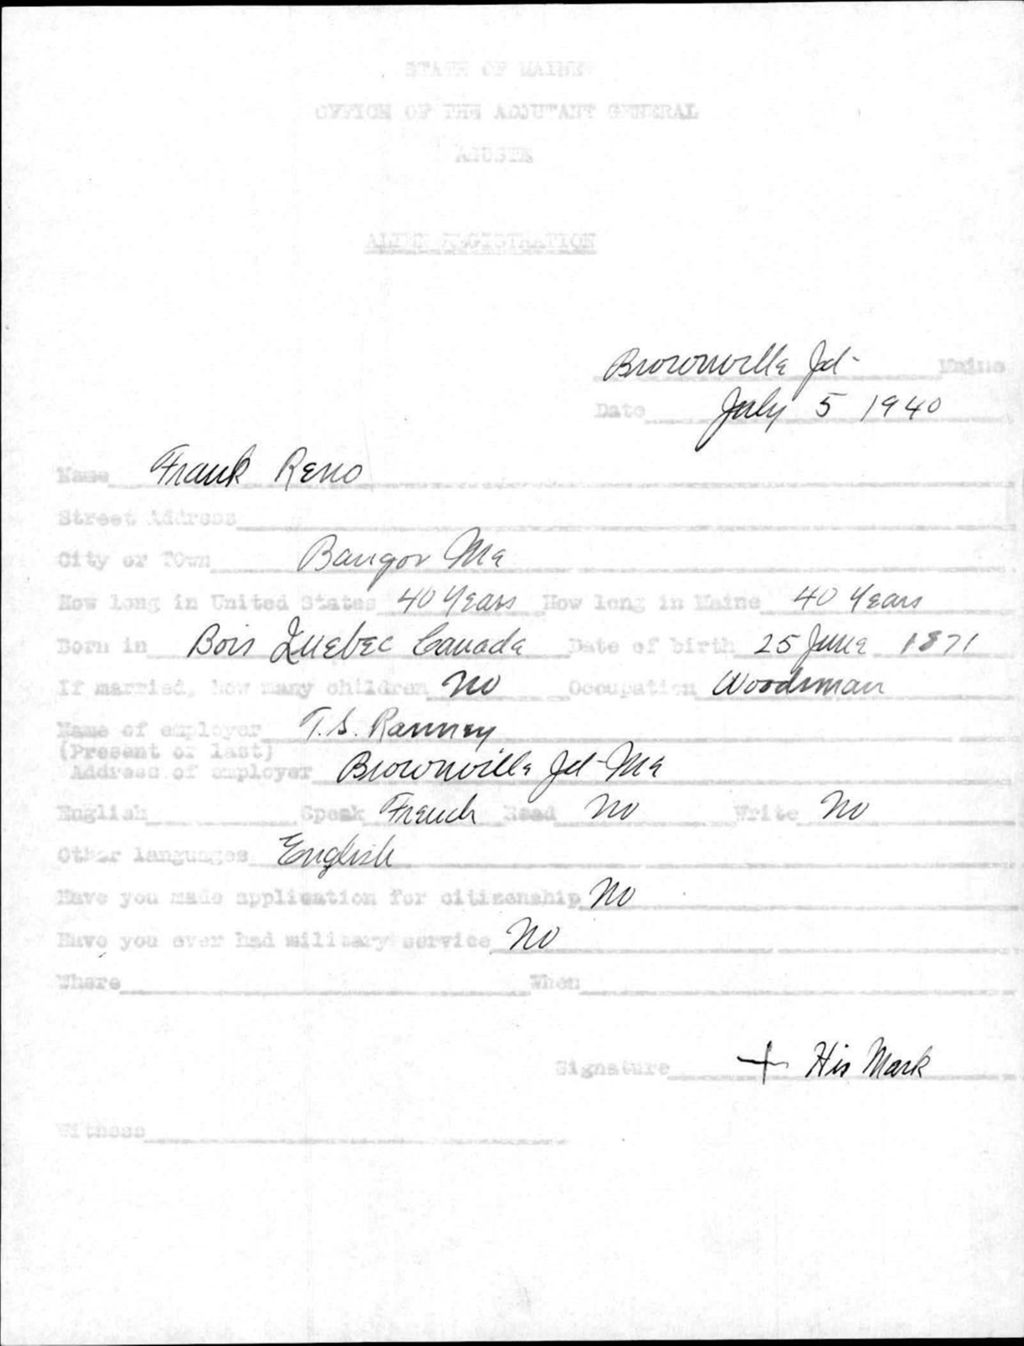 STATE OF MAINE
OFFICE OF THE ADJUTANT GENERAL
AUGUSTA
ALIEN REGISTRATION
Brownville Jct - Maine
Date July 5 1940
Name Frank Reno
Street Address
City or Town Bangor Me
How long in United States 40 Years How long in Maine 40 Years
Born in Bois Quebec Canada Date of birth 25 June 1871
If married, how many children No Occupation Woodsman
Name of employer T.S. Ranney
(Present or last)
Address of employer Brownville Jct - Me
English Speak French Read No Write No
Other languages English
Have you made application for citizenship No
Have you ever had military service No
Where When
Signature + His Mark
Witness